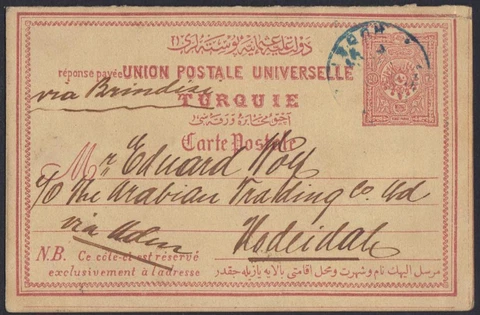 دولت علیهٔ عثمانیه پوسته لری
réponse payée UNION POSTALE UNIVERSELLE
via Brindisi
TURQUIE
Carte Postale
20
Mr Eduard
c/o The Arabian Trading Co. Ltd
via Aden
Hodeidah
N.B. Ce côté-ci est réservé
exclusivement à l'adresse
مرسل الیهك نام و شهرت و محل اقامتی بالایه یازیله جقدر